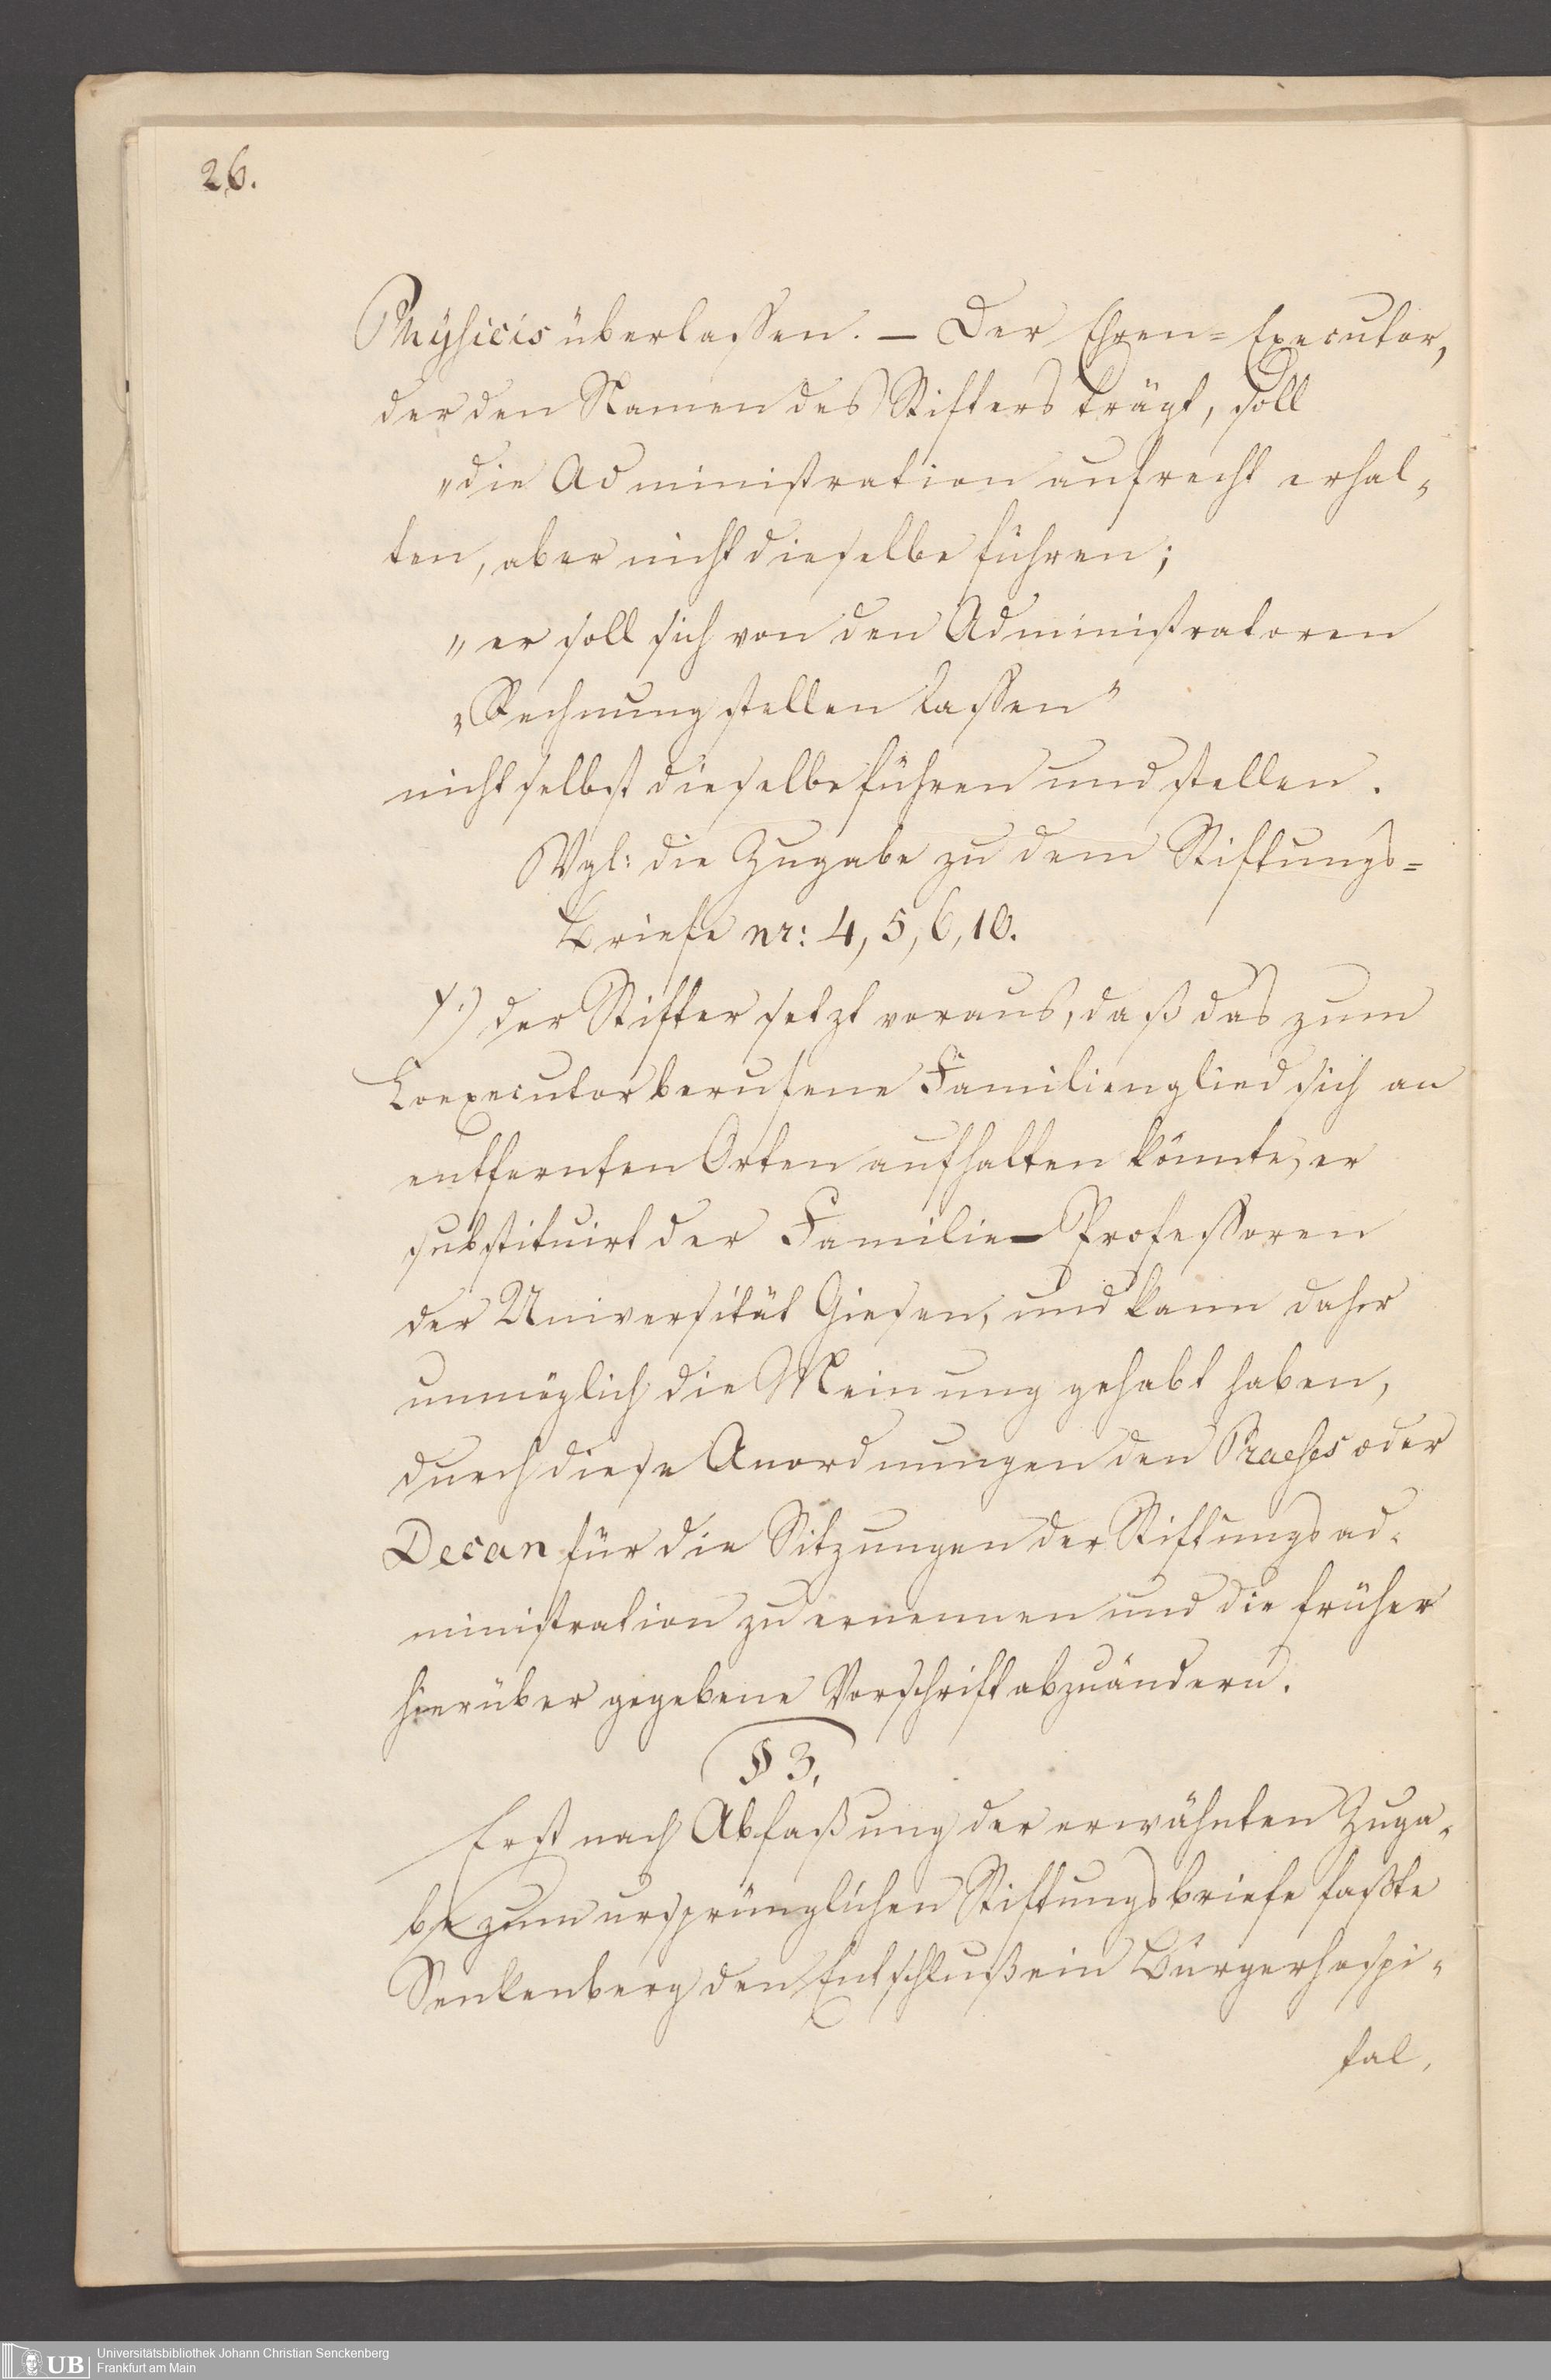 26.
Physicis überlassen. — Der Ehren=Executor,
der den Namen des Stifters trägt, soll
„die Administration aufrecht erhal„
ten, aber nicht dieselbe führen;
„er soll sich von den Administratoren
„Rechnung stellen lassen"
nicht selbst dieselbe führen und stellen.
Vgl: die Zugabe zu dem Stiftungs=
Briefe nr: 4, 5, 6, 10.
γ.) der Stifter setzt voraus, daß das zum
Coexecutor berufene Familienglied sich an
entfernten Orten aufhalten könnte, er
substituirt der Familie – Professoren
der Universität Giesen, und kann daher
unmöglich die Meinung gehabt haben,
durch diese Anordnungen den Praeses oder
Decan für die Sitzungen der Stiftungsad„
ministration zu ernennen und die früher
hierüber gegebene Vorschrift abzuändern.
§ 3.
Erst nach Abfaßung der erwähnten Zuga„
be zum ursprünglichen Stiftungsbriefe faßte
Senkenberg den Entschluß ein Bürgerhospi„
tal,
UB
Universitätsbibliothek Johann Christian Senckenberg
Frankfurt am Main